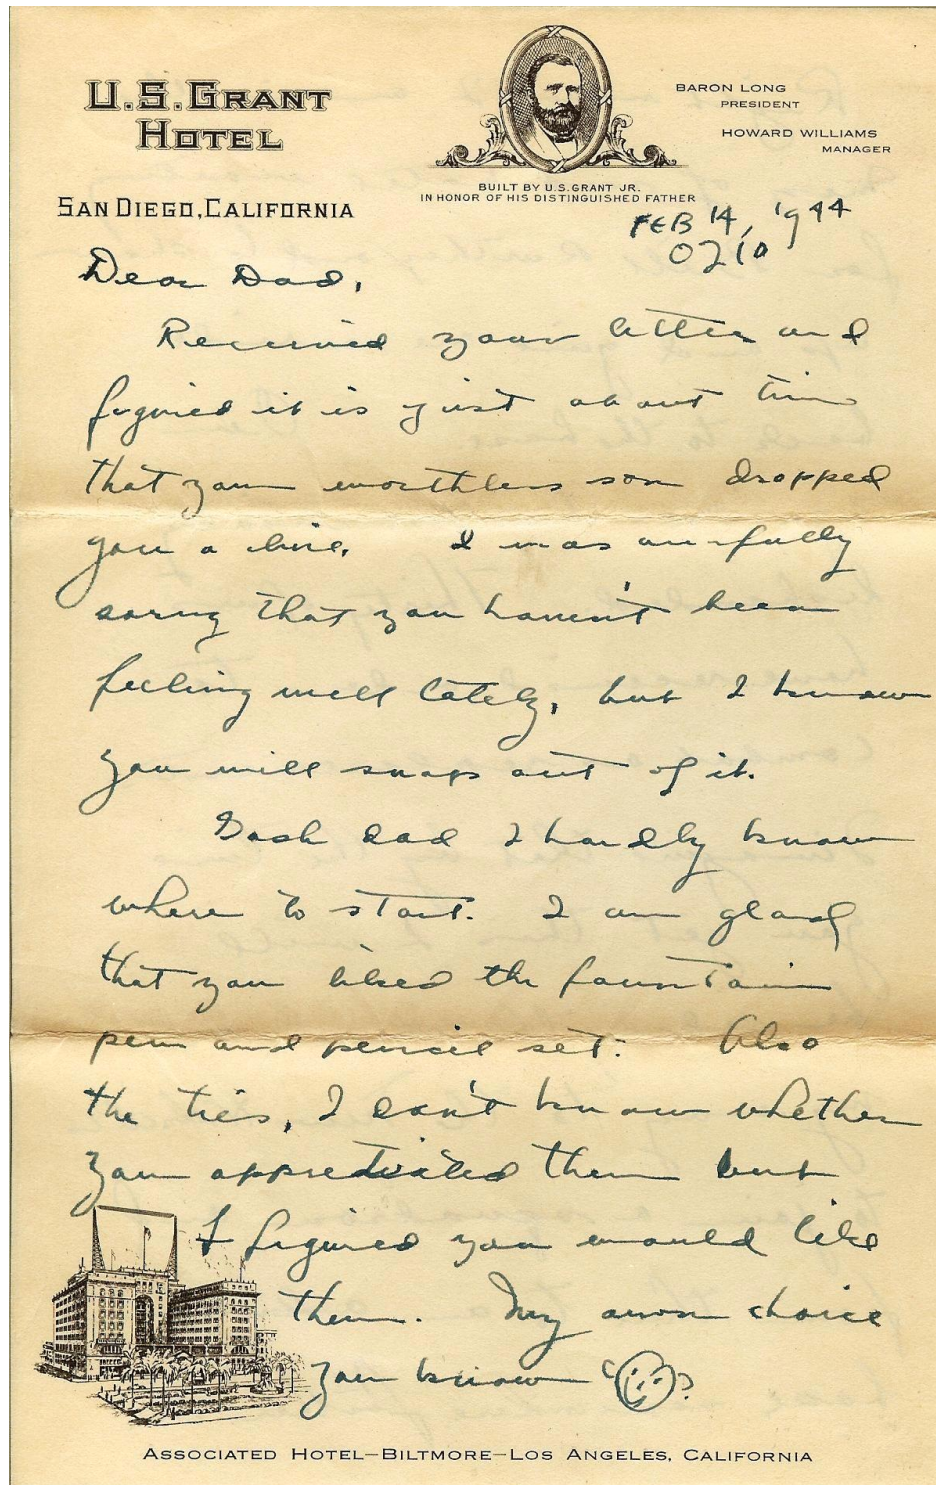 U.S. GRANT
HOTEL
SAN DIEGO, CALIFORNIA
BUILT BY U.S. GRANT JR.
IN HONOR OF HIS DISTINGUISHED FATHER
BARON LONG
PRESIDENT
HOWARD WILLIAMS
MANAGER
FEB 14, 1944
0210
Dear Dad,
Received your letter and
figured it is just about time
that your worthless son dropped
you a line. I was awfully
sorry that you haven't been
feeling well lately, but I know
you will snap out of it.
Gosh dad I hardly know
where to start. I am glad
that you liked the fountain
pen and pencil set. Also
the ties, I don't know whether
you appreciated them but
I figured you would like
them. My own choice
you know ?
ASSOCIATED HOTEL-BILTMORE-LOS ANGELES, CALIFORNIA